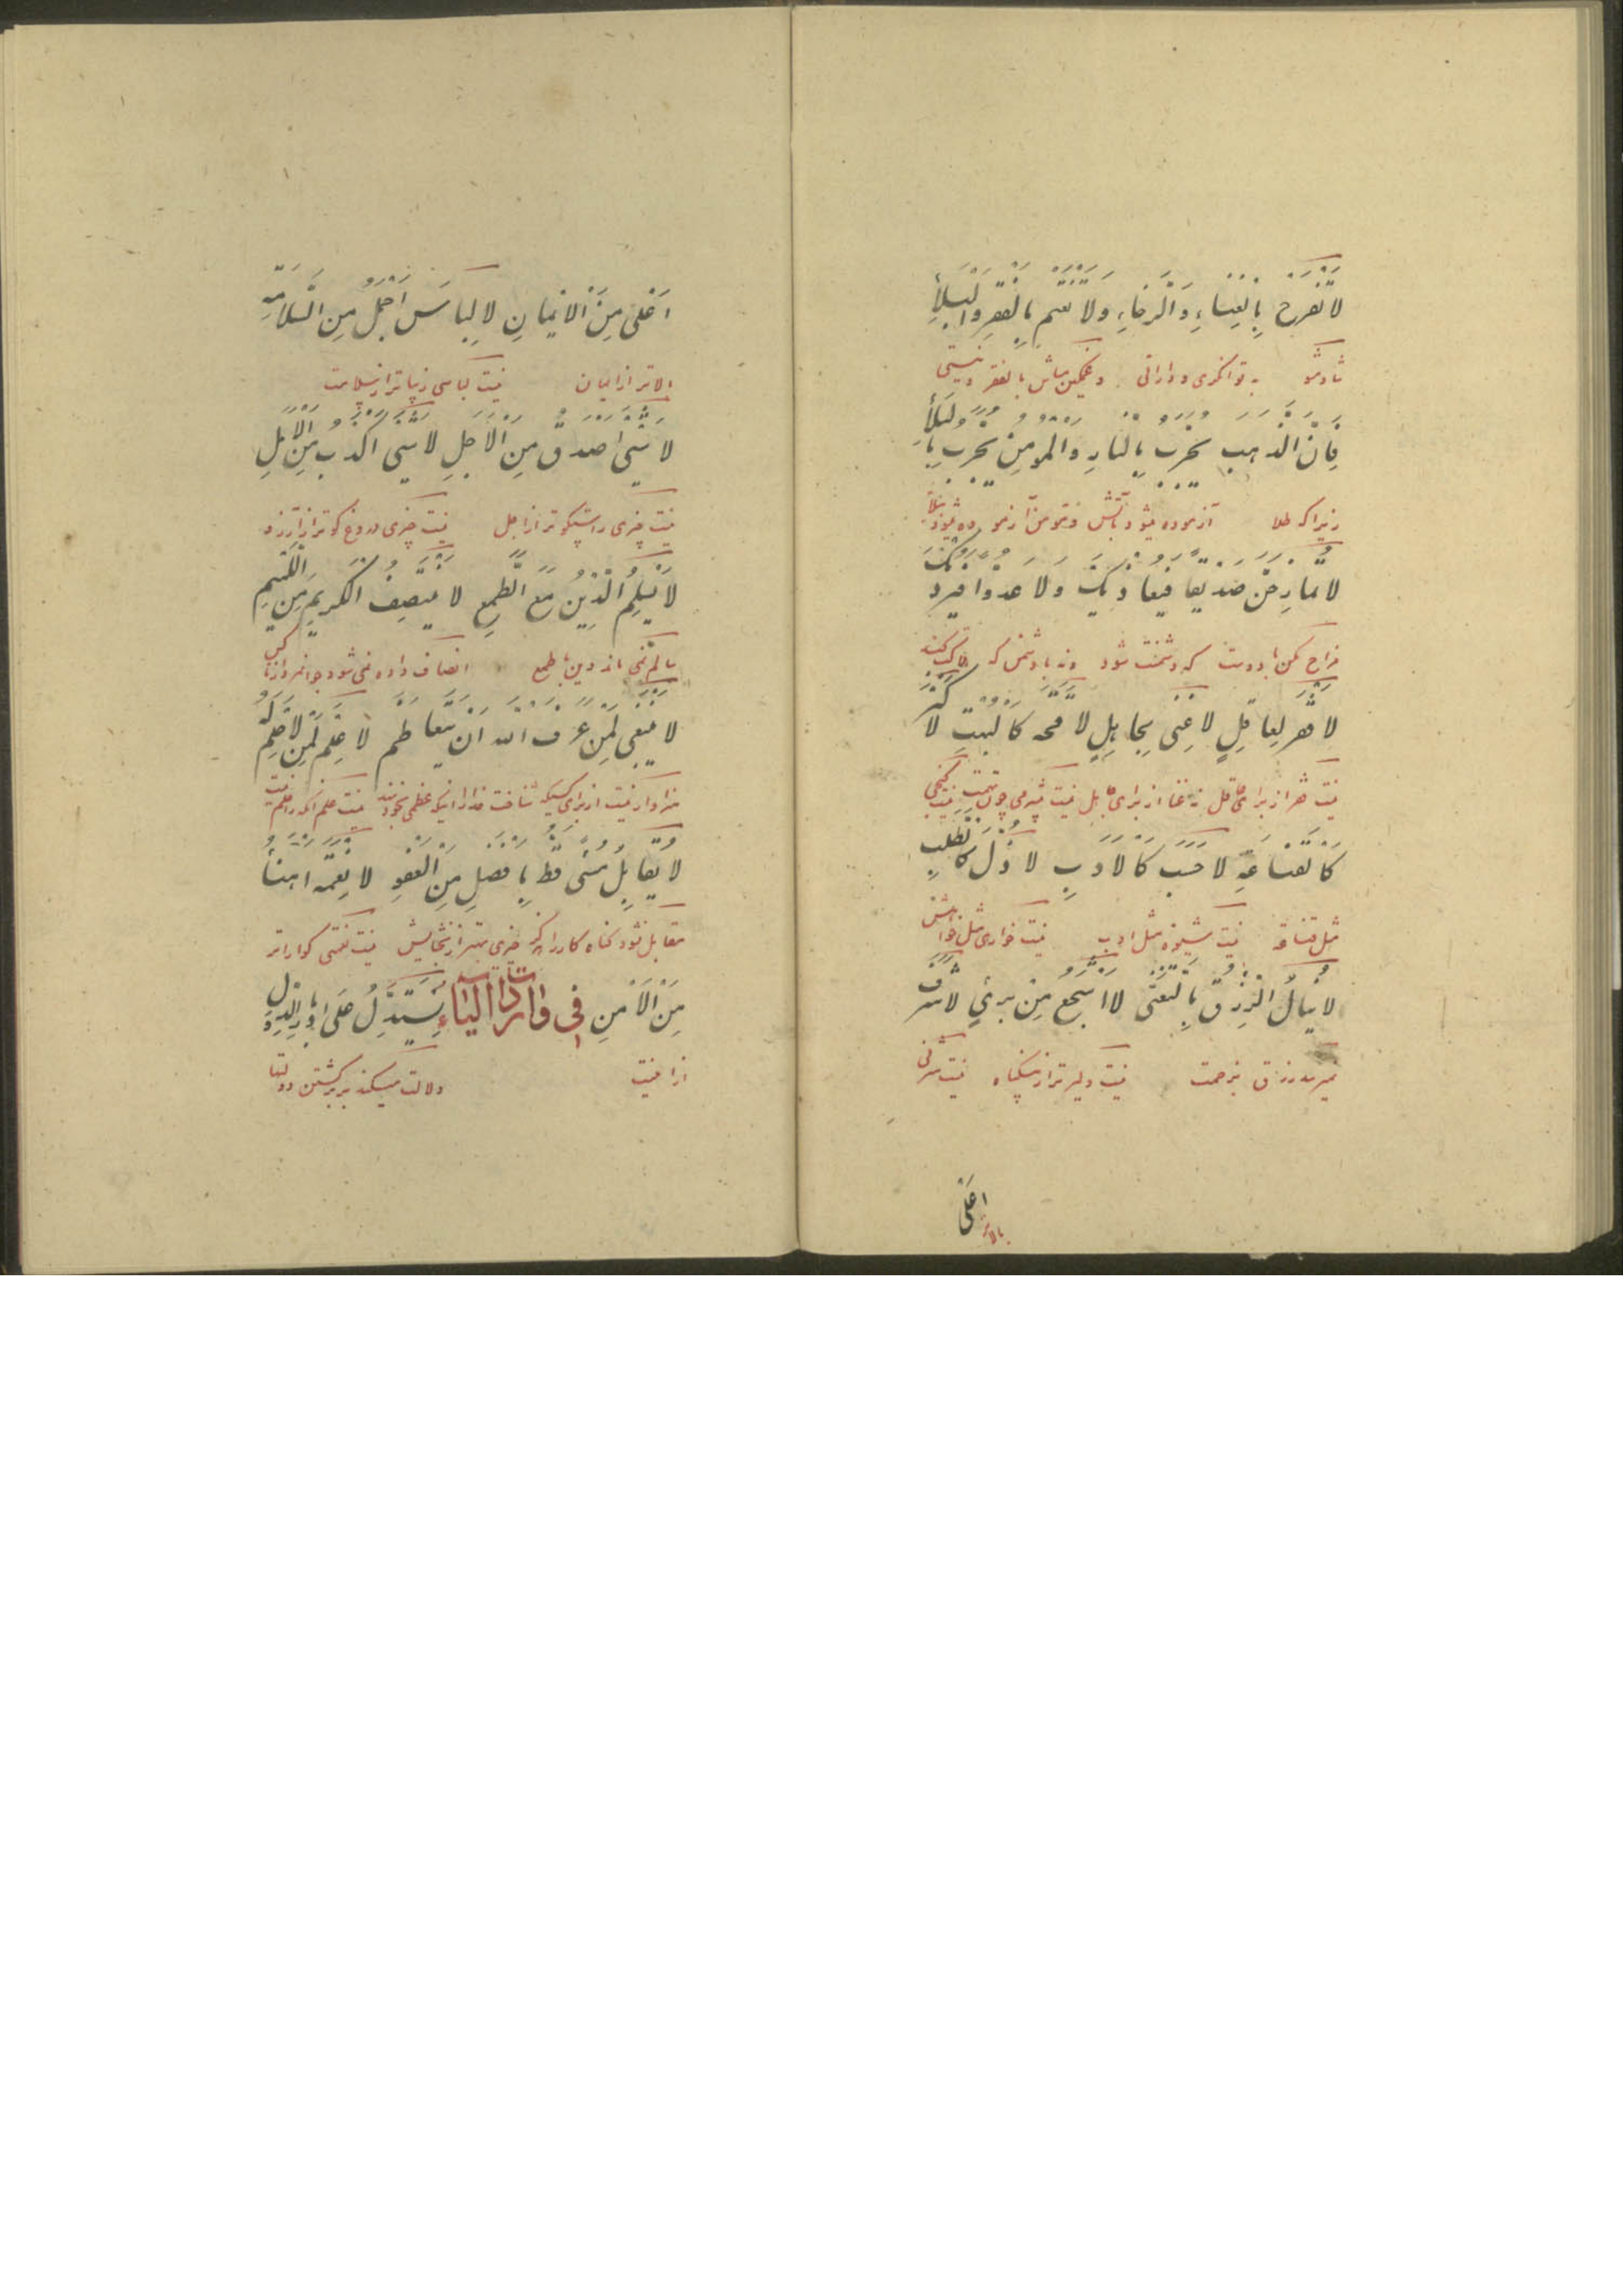 لَا تَفْرَحْ بِالْغِنَاءِ وَ الرَّخَاءِ وَلَا تَغْتَمْ بِالْفَقْرِ وَالْبَلَاءِ
شاد مشو به توانگری و دارائی و غمگین مباش بالفقر و نیستی
فَاِنَّ الذَّهَبَ یُجَرَّبُ بِالنَّارِ وَالْمُؤْمِنُ یُجَرَّبُ بِالْبَلَاءِ
زیرا که طلا آزموده میشود بآتش و مؤمن آزموده میشود ببلا
لَا تُمَازِحَنَّ صَدِیقًا فَیُعَادِیکَ وَلَا عَدُوًّا فَیُرْدِیکَ
مزاح مکن با دوست که دشمنت شود و نه با دشمن که هلاکت کند
لَا فَقْرَ لِعَاقِلٍ لَا غِنَی لِجَاهِلٍ لَا قِحَة کَالْبُهْتِ لَا کَنْزَ
نیست فقر از برای عاقل نه غنا از برای جاهل نیست بیشرمی چون تهمت نیست گنجی
کَالْقَنَاعَةِ لَا حَسَبَ کَالْاَدَبِ لَا ذُلَّ کَالطَّلَبِ
مثل قناعة نیست شیوه مثل ادب نیست خواری مثل خواهش
لَا یُنَالُ الرِّزْقُ بِالتَّعَنِّی لَا اَشْجَعَ مِنْ بَرِیءٍ لَا شَرَفَ
نمیرسد رزق بزحمت نیست دلیرتر از بیگناه نیست شرفی
اَعْلَی
بالاتر
اَعْلَی مِنَ الْاِیمَانِ لَا لِبَاسَ اَجْمَلُ مِنَ السَّلَامَةِ
بالاتر از ایمان نیست لباسی زیباتر از سلامت
لَا شَیْءَ اَصْدَقُ مِنَ الْاَجَلِ لَا شَیْءَ اَکْذَبُ مِنَ الْاَمَلِ
نیست چیزی راستگوتر از اجل نیست چیزی دروغ گوتر از آرزو
لَا یَسْلَمُ الدِّینُ مَعَ الطَّمَعِ لَا یَنْتَصِفُ الْکَرِیمُ مِنَ اللَّئِیمِ
سالم نمی ماند دین با طمع انصاف داده نمی شود جوانمرد از ناکس
لَا یَنْبَغِی لِمَنْ عَرَفَ اللَّهَ اَنْ یَتَعَاظَمَ لَا عِلْمَ لِمَنْ لَا حِلْمَ لَهُ
سزاوار نیست از برای کسیکه شناخت خدا را اینکه عظمی بخود بندد نیست علم آنکه را حلم نیست
لَا یُقَابَلُ مُسِیءٌ قَطُّ بِاَفْضَلَ مِنَ الْعَفْوِ لَا نِعْمَةَ اَهْنَأُ
مقابل نشود گناه کار را هرگز چیزی بهتر از بخشایش نیست نعمتی گواراتر
مِنَ الْاَمْنِ فی واردات الیاء یُسْتَدَلُّ عَلَی اِدْبَارِ الدُّوَلِ
از امنیت دلالت میکند بر برگشتن دولتها